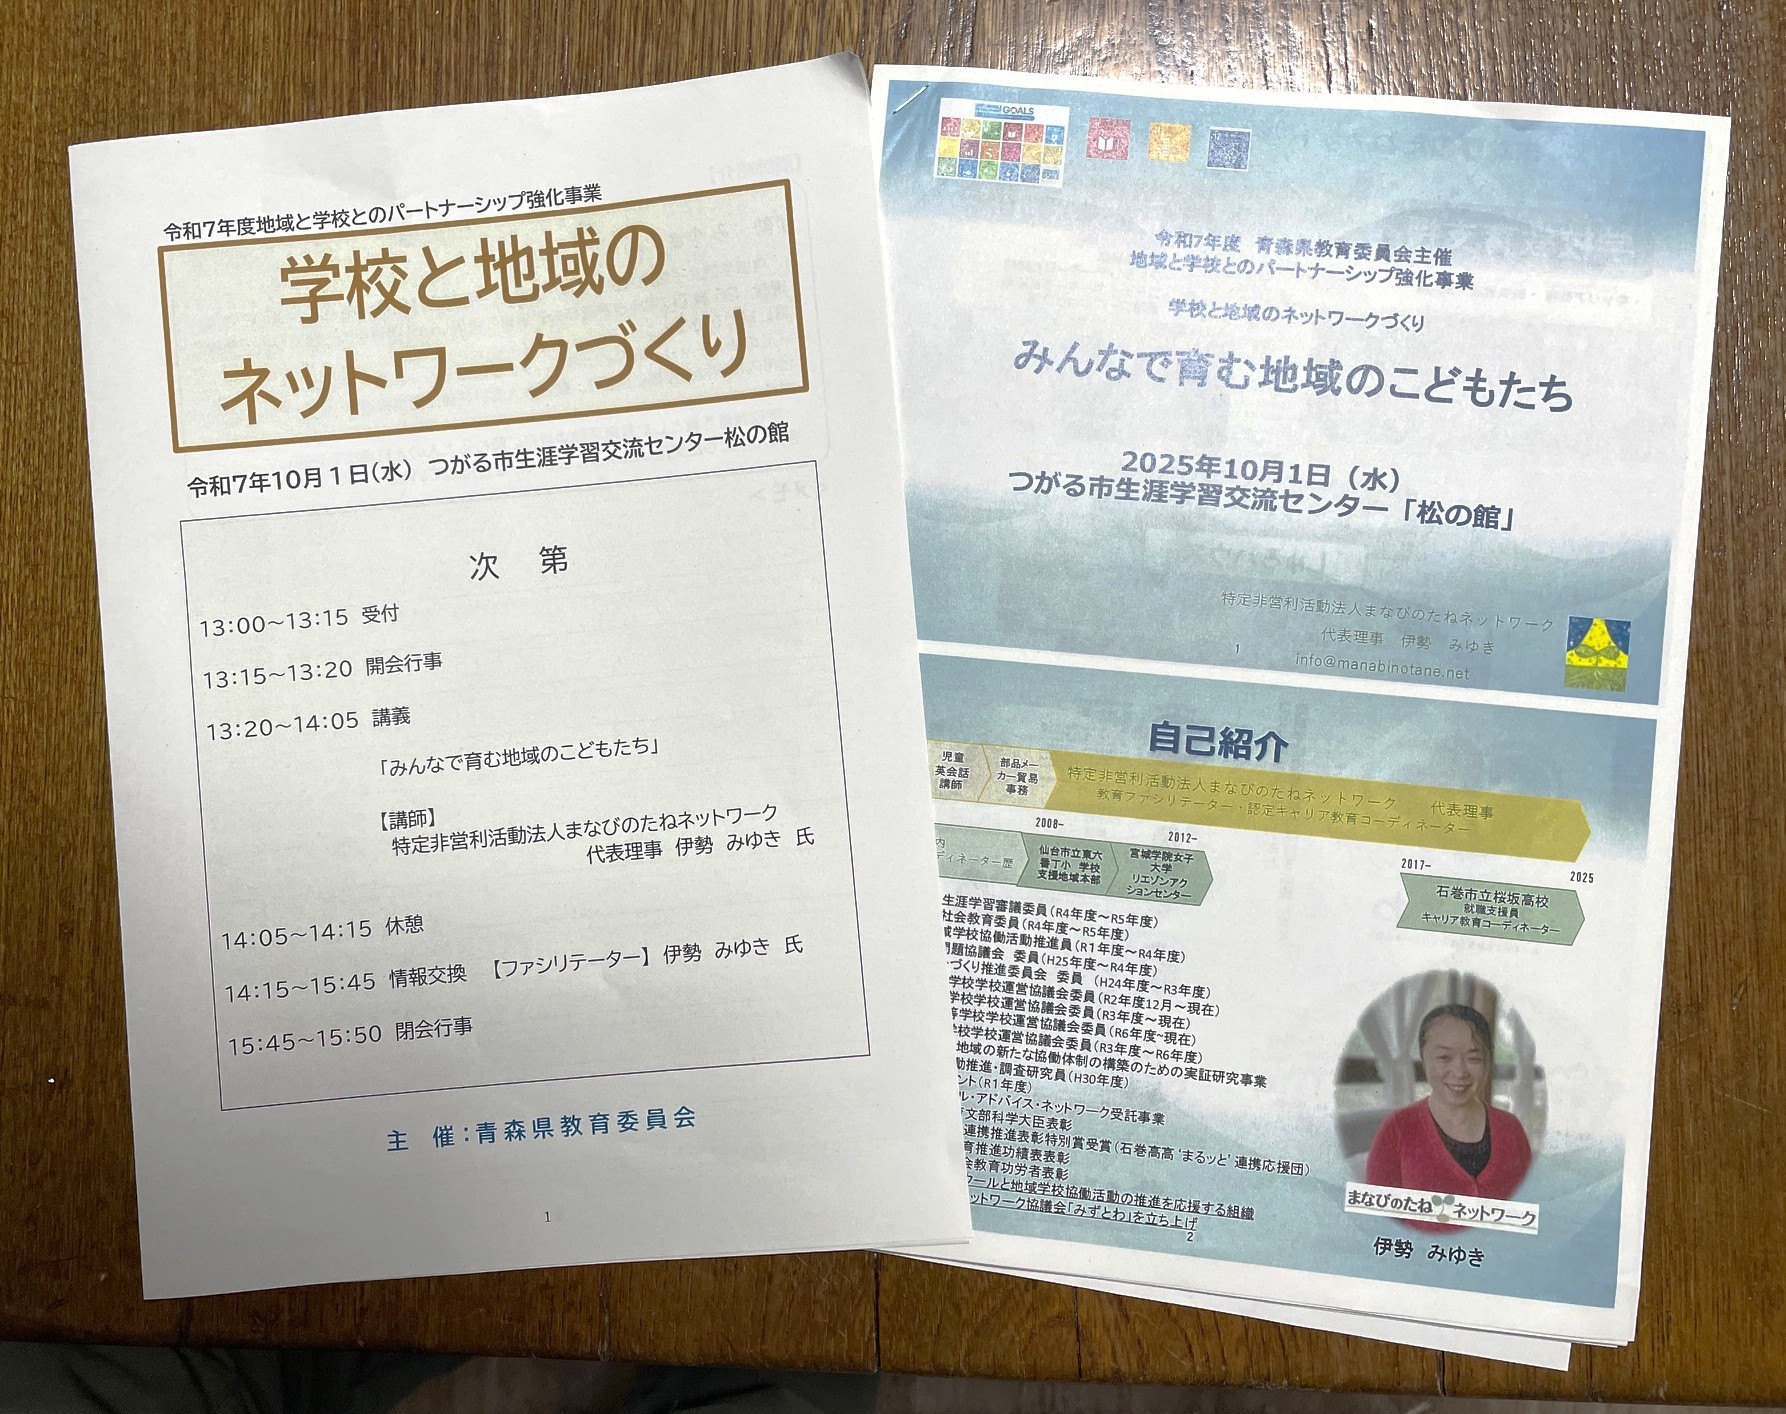 令和7年度地域と学校とのパートナーシップ強化事業
学校と地域の
ネットワークづくり
令和7年10月1日(水) つがる市生涯学習交流センター松の館
次 第
13:00～13:15 受付
13:15～13:20 開会行事
13:20～14:05 講義
「みんなで育む地域のこどもたち」
【講師】
特定非営利活動法人まなびのたねネットワーク
代表理事 伊勢 みゆき 氏
14:05～14:15 休憩
14:15～15:45 情報交換 【ファシリテーター】伊勢 みゆき 氏
15:45～15:50 閉会行事
主 催:青森県教育委員会
1
GOALS
令和7年度 青森県教育委員会主催
地域と学校とのパートナーシップ強化事業
学校と地域のネットワークづくり
みんなで育む地域のこどもたち
2025年10月1日（水）
つがる市生涯学習交流センター「松の館」
特定非営利活動法人まなびのたねネットワーク
代表理事 伊勢 みゆき
1
info@manabinotane.net
自己紹介
児童
英会話
講師
部品メー
カー貿易
事務
特定非営利活動法人まなびのたねネットワーク 代表理事
教育ファシリテーター・認定キャリア教育コーディネーター
2008-
2012-
2017-
2025
内
ディネーター歴
仙台市立東六
番丁小 学校
支援地域本部
宮城学院女子
大学
リエゾンアク
ションセンター
石巻市立桜坂高校
就職支援員
キャリア教育コーディネーター
生涯学習審議委員(R4年度～R5年度)
社会教育委員(R4年度～R5年度)
域学校協働活動推進員(R1年度～R4年度)
問題協議会 委員(H25年度～R4年度)
づくり推進委員会 委員 (H24年度～R3年度)
学校学校運営協議会委員(R2年度12月～現在)
学校学校運営協議会委員(R3年度～現在)
等学校学校運営協議会委員(R6年度~現在)
学校学校運営協議会委員(R3年度～R6年度)
地域の新たな協働体制の構築のための実証研究事業
動推進・調査研究員(H30年度)
ント(R1年度)
ル・アドバイス・ネットワーク受託事業
文部科学大臣表彰
連携推進表彰特別賞受賞(石巻高高‘まるッと’連携応援団)
育推進功績表表彰
会教育功労者表彰
クールと地域学校協働活動の推進を応援する組織
ットワーク協議会「みずとわ」を立ち上げ
2
まなびのたねネットワーク
伊勢 みゆき